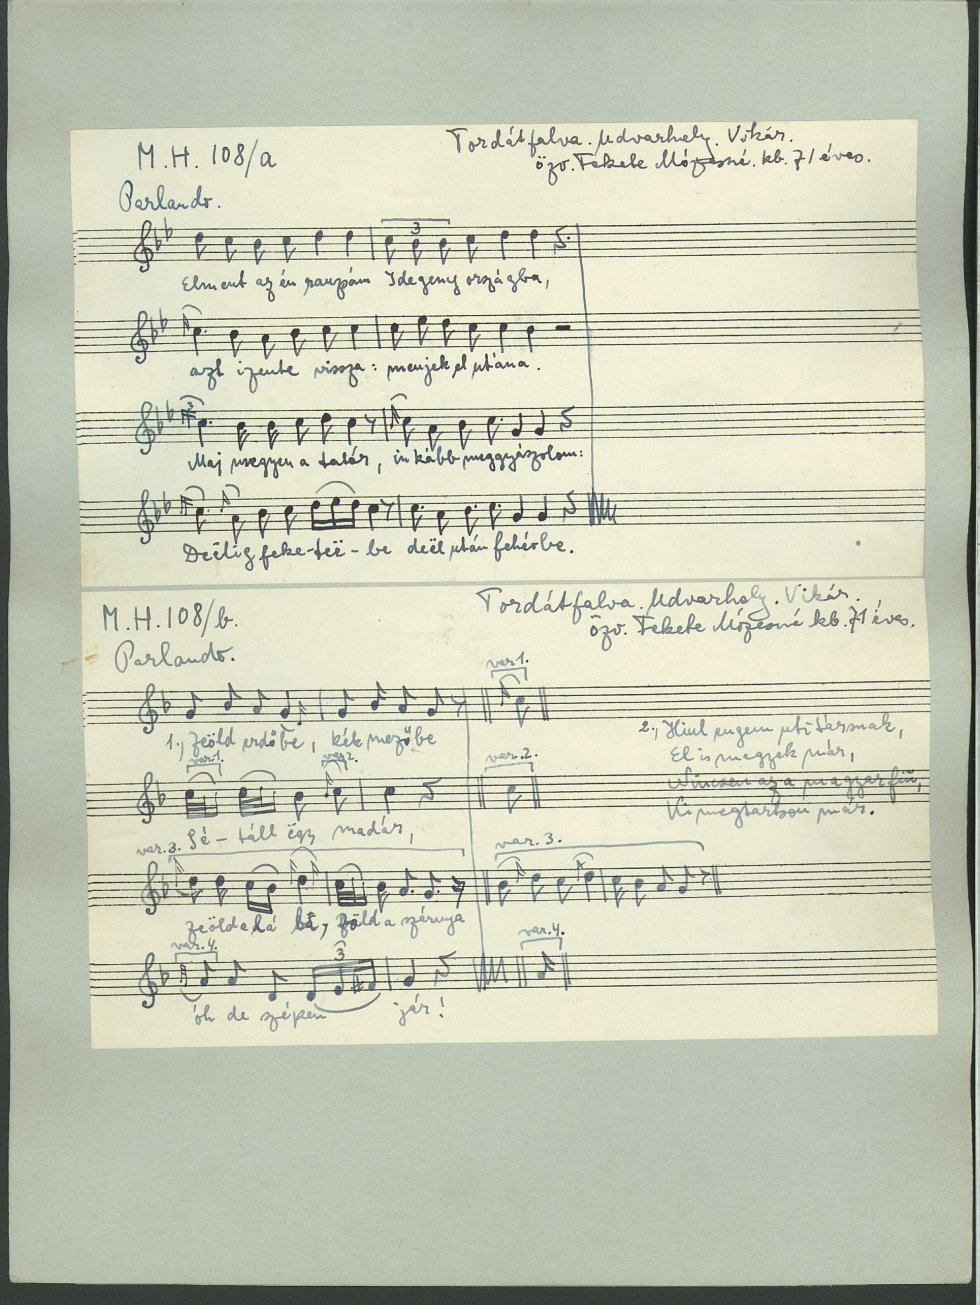 M.H. 108/a
Tordátfalva. Udvarhely. Vikár.
özv. Fekete Mózesné. kb. 71 éves.
Parlando.
3
Elment az én rauzám Idegeny országba,
azt izente vissza: menjek el utána.
3
Maj megyen a tatár, inkább meggyászolom:
Deëlig feke-teë-be deël után fehérbe.
M.H. 108/b.
Tordátfalva. Udvarhely. Vikár.
Özv. Fekete Mózesné kb. 71 éves.
Parlando.
var 1.
1., Zeöld erdőbe, kék mezőbe
2., Hiul engem uti társnak,
El is megyek már,
Nincsen az a magyar fiú,
Ki megtartson már.
var 1. var 2. var. 2.
Sé-táll ëgy madár,
var. 3. var. 3.
zeöld a lá bá, zöld a szárnya
var. 4. 3 var. 4.
óh de szépen jár!